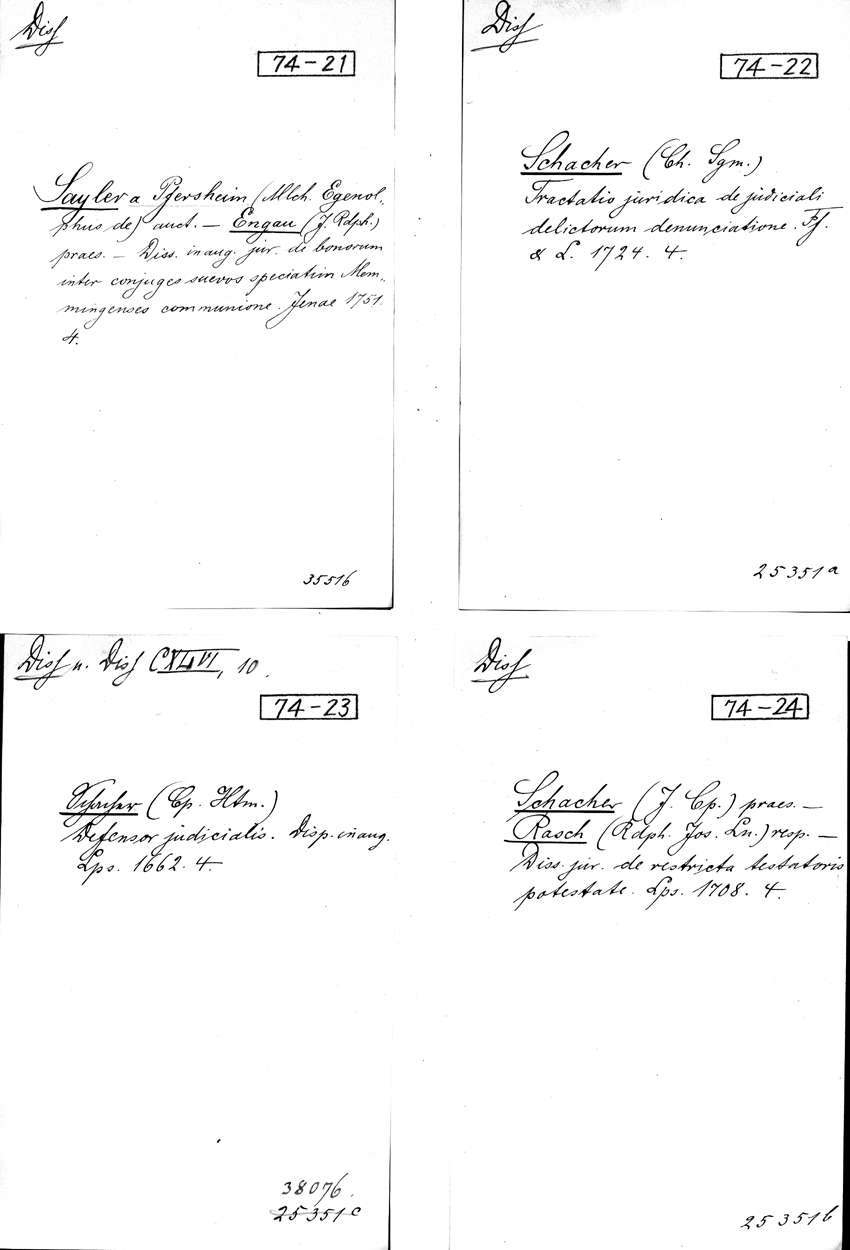 Diss
74-21
Sayler a Pfersheim (Mlch. Egenol„
phus de) auct. — Engau (J. Rdph.)
praes. — Diss. inaug. jur. de bonorum
inter conjuges suevos speciatim Mem„
mingenses communione. Jenae 1751.
4.
35516
Diss
74-22
Schacher (Ch. Sgm.)
Tractatio juridica de judiciali
delictorum denunciatione. Ff.
& L. 1724. 4.
25351a
Diss u. Diss CXLVI, 10.
74-23
Schacher (Cp. Htm.)
Defensor judicialis. Disp. inaug.
Lps. 1662. 4.
38076.
25351c
Diss
74-24
Schacher (J. Cp.) praes. —
Rasch (Rdph. Jos. Ln.) resp. —
Diss. jur. de restricta testatoris
potestate. Lps. 1708. 4.
25351b